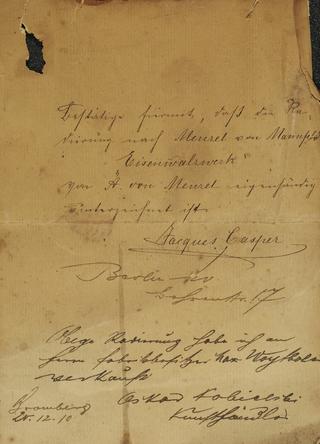 Bestätige hiermit, daß die Ra-
dierung nach Menzel von Mannfeld
"Eisenwalzwerk"
von A. von Menzel eigenhändig
unterzeichnet ist.
Jacques Casper
Berlin
Behrenstr. 17
Obige Radierung habe ich an
Herrn Fabrikbesitzer Max
verkauft
Oskar
Kunsthändler
Bromberg
20.12.10